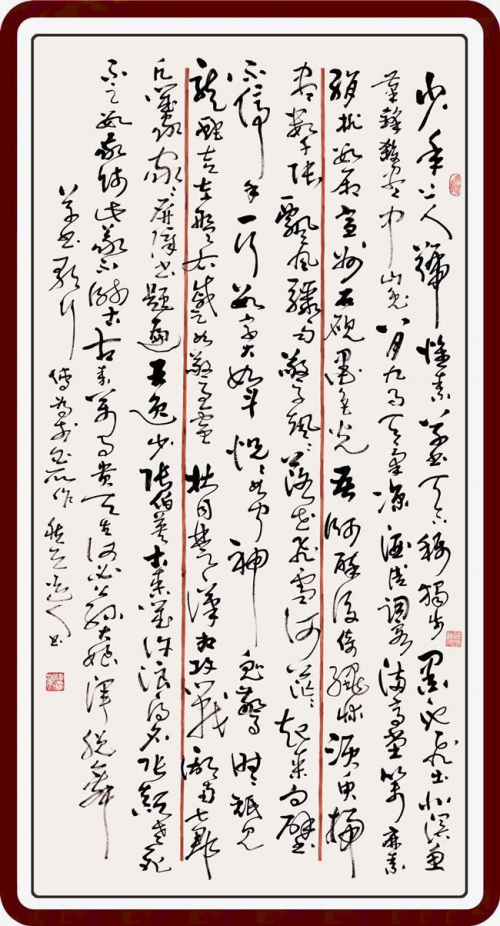 少年上人號懷素草書天下稱獨步墨池飛出北溟魚
筆鋒殺盡中山兔八月九月天氣涼酒徒詞客滿高堂箋麻素
絹排數廂宣州石硯墨色光吾師醉後倚繩床須臾掃
盡數千張飄風驟雨驚颯颯落花飛雪何茫茫起來向壁
不停手一行數字大如斗恍恍如聞神鬼驚時時只見
龍蛇走左盤右蹙如驚電狀同楚漢相攻戰湖南七郡
凡幾家家家屏障書題遍王逸少張伯英古來幾許浪得名張顛老死
不足數我師此義不師古古來萬事貴天生何必公孫大娘渾脫舞
草書歌行 傳為李白所作 書